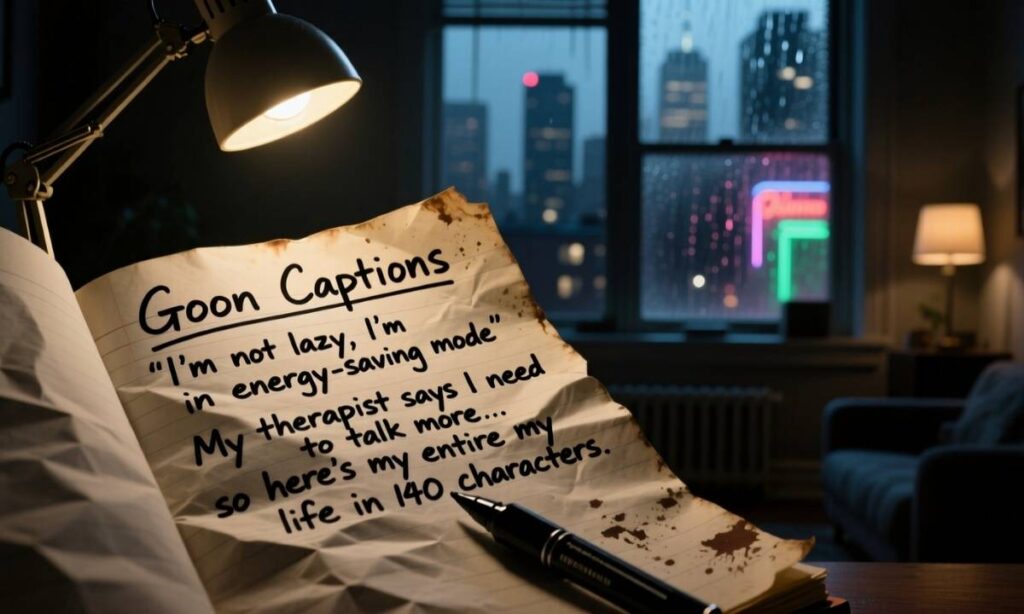 Goon Captions
"I'm not lazy, I'm
in energy-saving mode"
My therapist says I need
to talk more...
so here's my entire my
life in 140 characters.